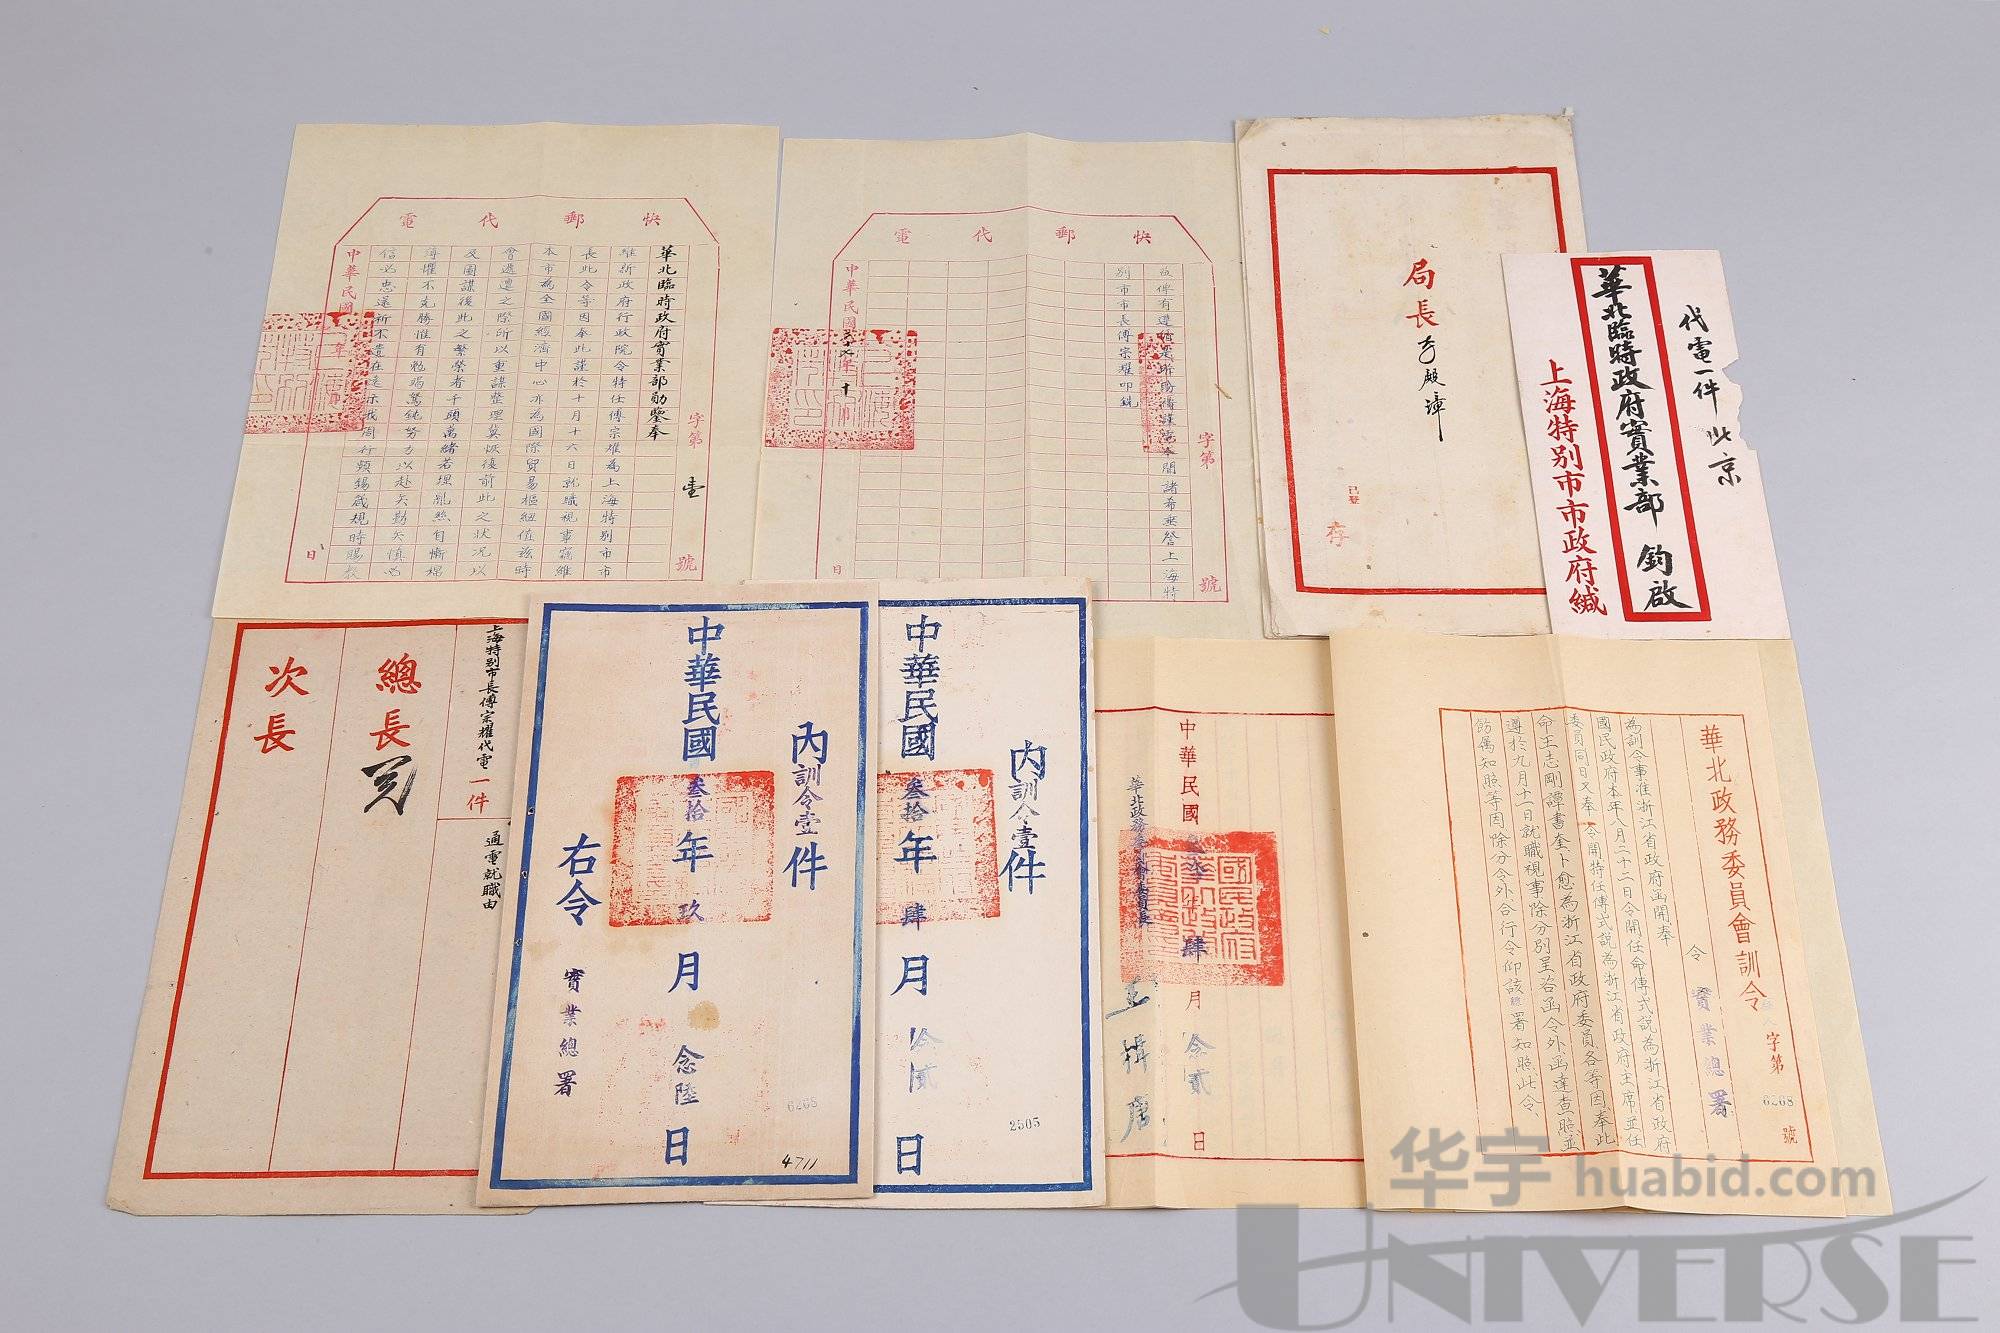 快郵代電
字第壹號
華北臨時政府實業部勛鑒奉
維新政府行政院令特任傅宗耀為上海特別市市
長此令等因奉此謹於十月十六日就職視事竊維
本市為全國經濟中心亦為國際貿易樞紐值茲時
會遷遭之際所以重謀整理冀恢復前此之狀況以
及圖謀後此之繁榮者千頭萬緒若理亂絲自慚樗
薄懼不克勝惟有勉竭駑鈍努力以赴矢勤矢慎必
信必忠遠祈不遺在遠示我周行頻錫箴規時賜教
中華民國
日
快郵代電
字第
號
別市市長傅宗耀叩銑
中華民國
十
日
局長李殿璋
已登
存
代電一件 北京
華北臨時政府實業部 鈞啟
上海特別市市政府緘
上海特別市長傅宗耀代電一件
通電就職由
總長
次長
內訓令壹件
中華民國叁拾年玖月念陸日
右令
實業總署
6268
4711
內訓令壹件
中華民國叁拾年肆月拾貳日
2505
中華民國
肆月念貳日
華北政務委員會委員長
王揖唐
國民政府
華北政務委員會訓令
字第6268號
令 實業總署
為訓令事准浙江省政府函開奉
國民政府本年八月二十二日令開任命傅式說為浙江省政府
委員同日又奉令開特任傅式說為浙江省政府主席並任
命王志剛譚書奎卜愈為浙江省政府委員各等因奉此
遵於九月十一日就職視事除分別呈咨函令外函達查照並
飭屬知照等因除分令外合行令仰該總署知照此令
华宇 huabid.com
UNIVERSE